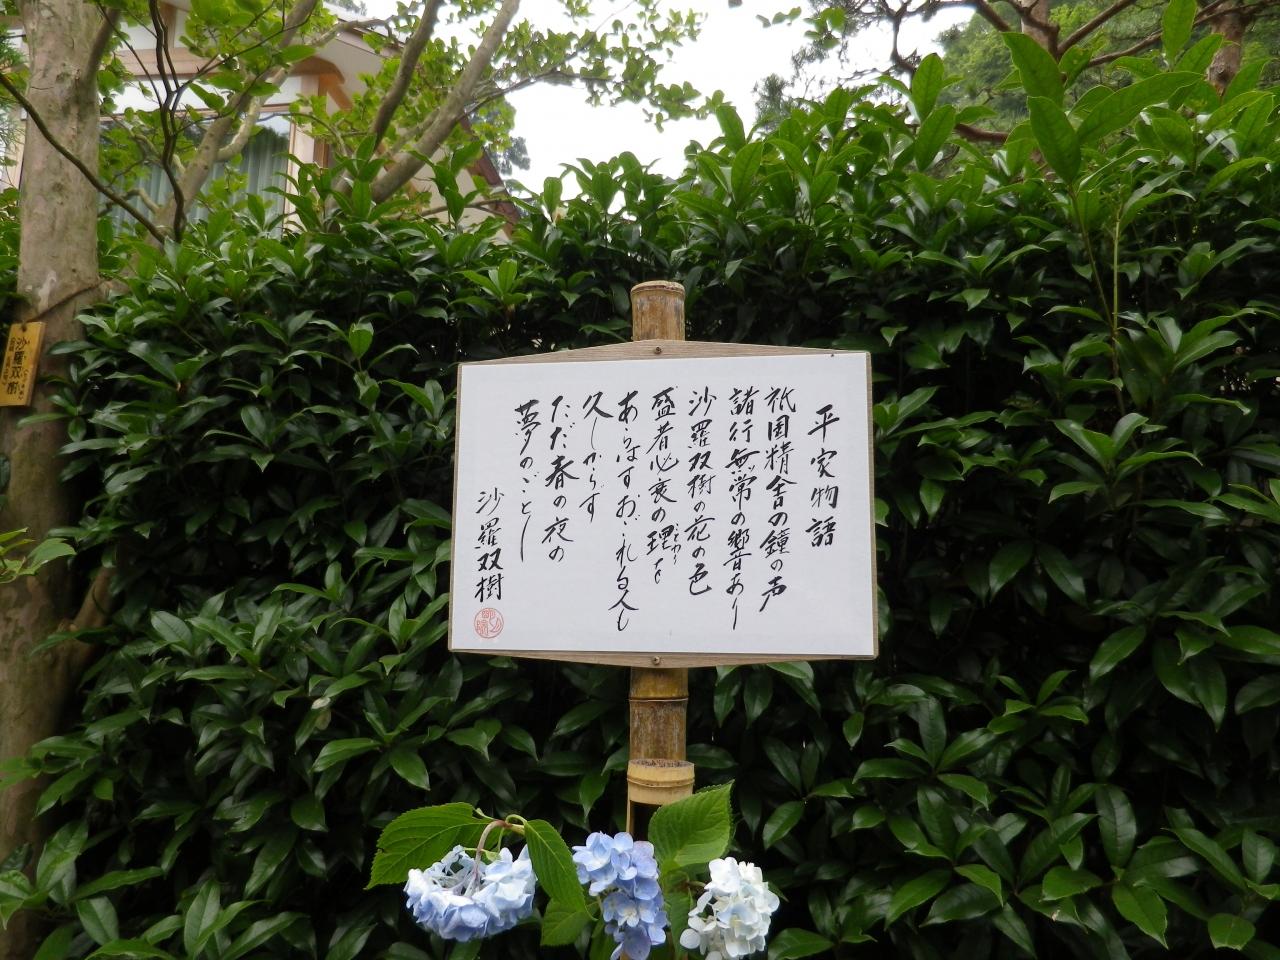 平家物語
祇園精舎の鐘の声
諸行無常の響あり
沙羅双樹の花の色
盛者必衰の理を
ことわり
あらはすおごれる人も
久しからず
ただ春の夜の
夢のごとし
沙羅双樹
沙羅双樹